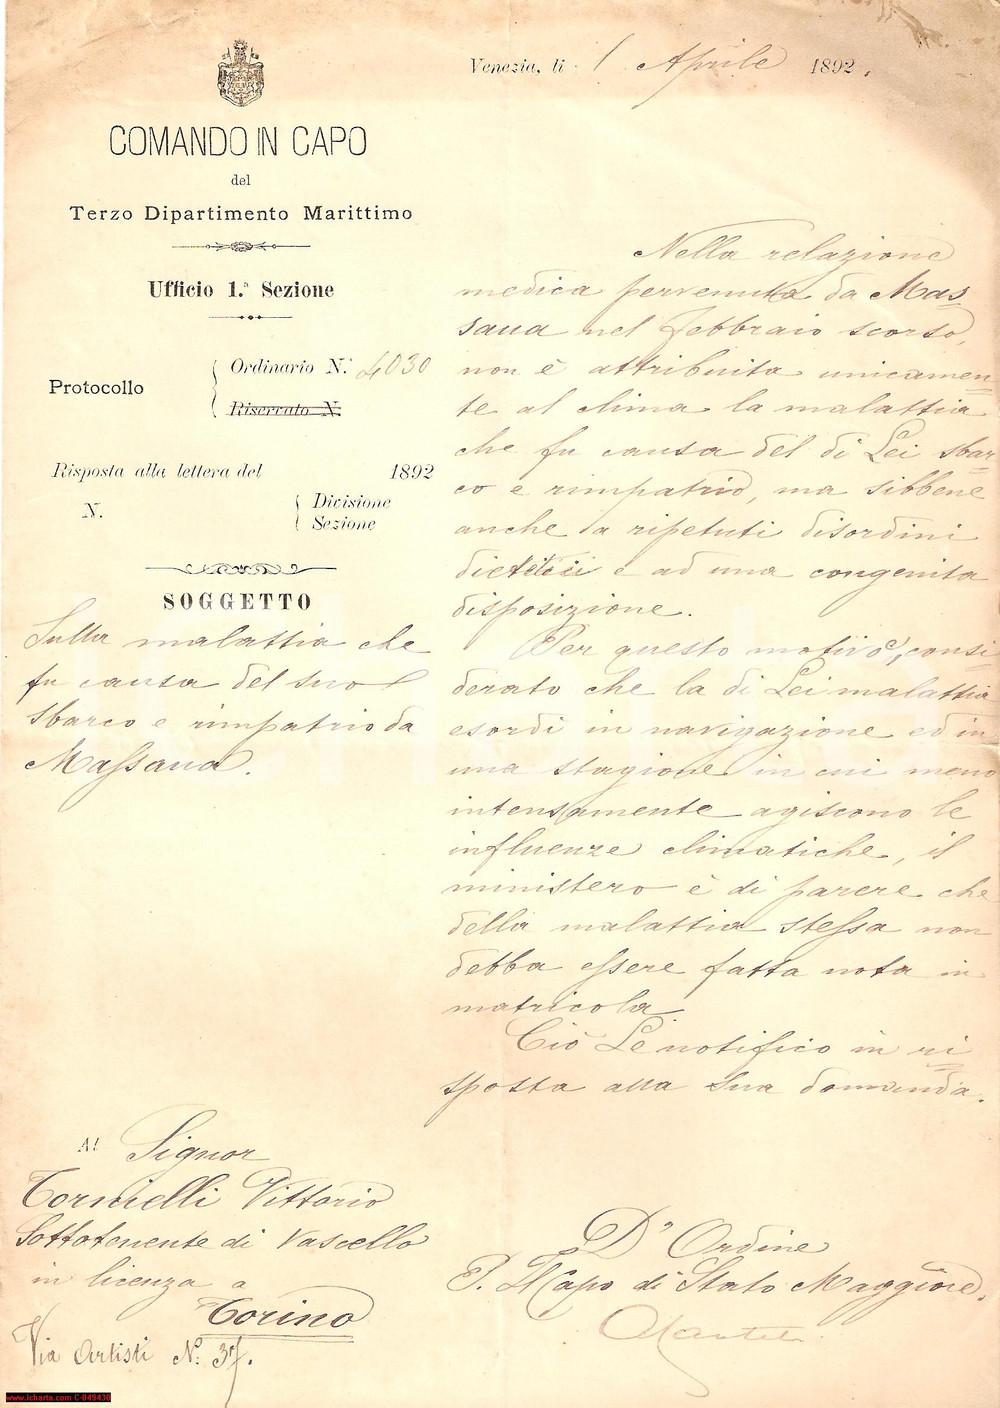 Venezia, li 1 Aprile 1892.
COMANDO IN CAPO
del
Terzo Dipartimento Marittimo
Ufficio 1.ª Sezione
Protocollo
Ordinario N.º 4030
Riservato N.
Risposta alla lettera del 1892
N.
Divisione
Sezione
SOGGETTO
Sulla malattia che
fu causa del suo
sbarco e rimpatrio da
Massaua.
Nella relazione
medica pervenuta da Mas-
saua nel febbraio scorso,
non è attribuita unicamen-
te al clima la malattia
che fu causa del di Lei sbar-
co e rimpatrio, ma sibbene
anche a ripetuti disordini
dietetici e ad una congenita
disposizione.
Per questo motivo, consi-
derato che la di Lei malattia
esordì in navigazione ed in
una stagione in cui meno
intensamente agiscono le
influenze climatiche, il
ministero è di parere che
della malattia stessa non
debba essere fatta nota in
matricola.
Ciò Le notifico in ri-
sposta alla sua domanda.
Al Signor
Tornielli Vittorio
Sottotenente di Vascello
in licenza a
Torino
Via Artisti No. 37.
D'Ordine
Il Capo di Stato Maggiore.
www.icharta.com C-049430